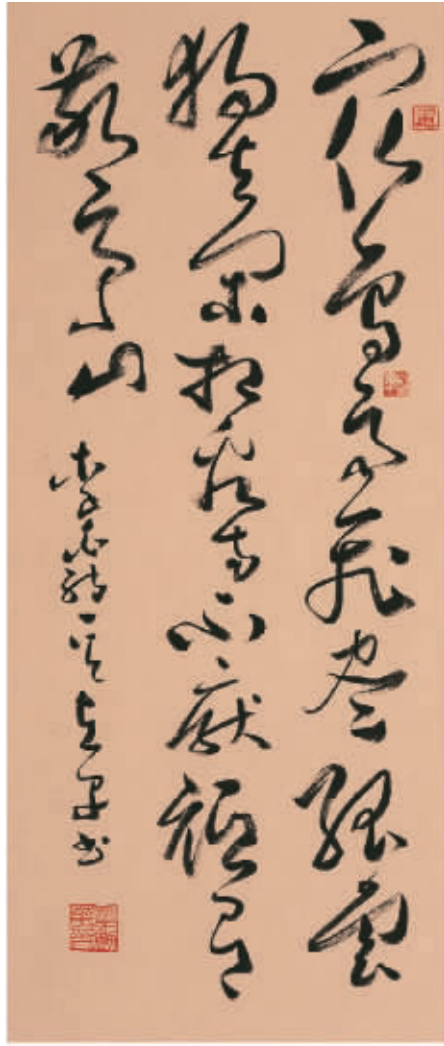 众鳥高飛盡孤雲
獨去閑相看兩不厭祗有
敬亭山
李白詩一首 書